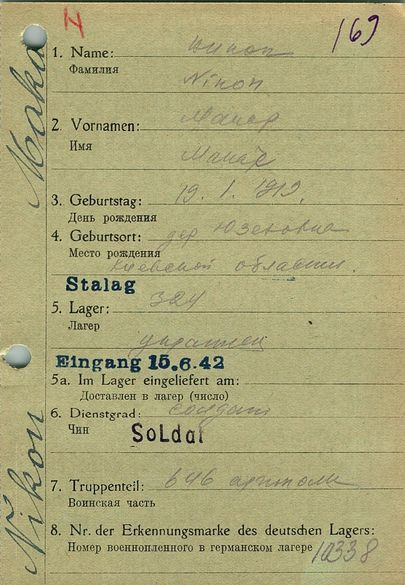 H 169
1. Name: Никон
Фамилия Nikon
2. Vornamen: Макар
Имя Makar
3. Geburtstag: 19. I. 1912.
День рождения
4. Geburtsort: дер
Место рождения Киевской области.
Stalag
5. Lager: 324
Лагер украинец
Eingang 15.6.42
5a. Im Lager eingeliefert am:
Доставлен в лагер (число)
6. Dienstgrad: солдат
Чин Soldat
7. Truppenteil: 646
Воинская часть
8. Nr. der Erkennungsmarke des deutschen Lagers:
Номер военнопленного в германском лагере 10338
Nikon Makar